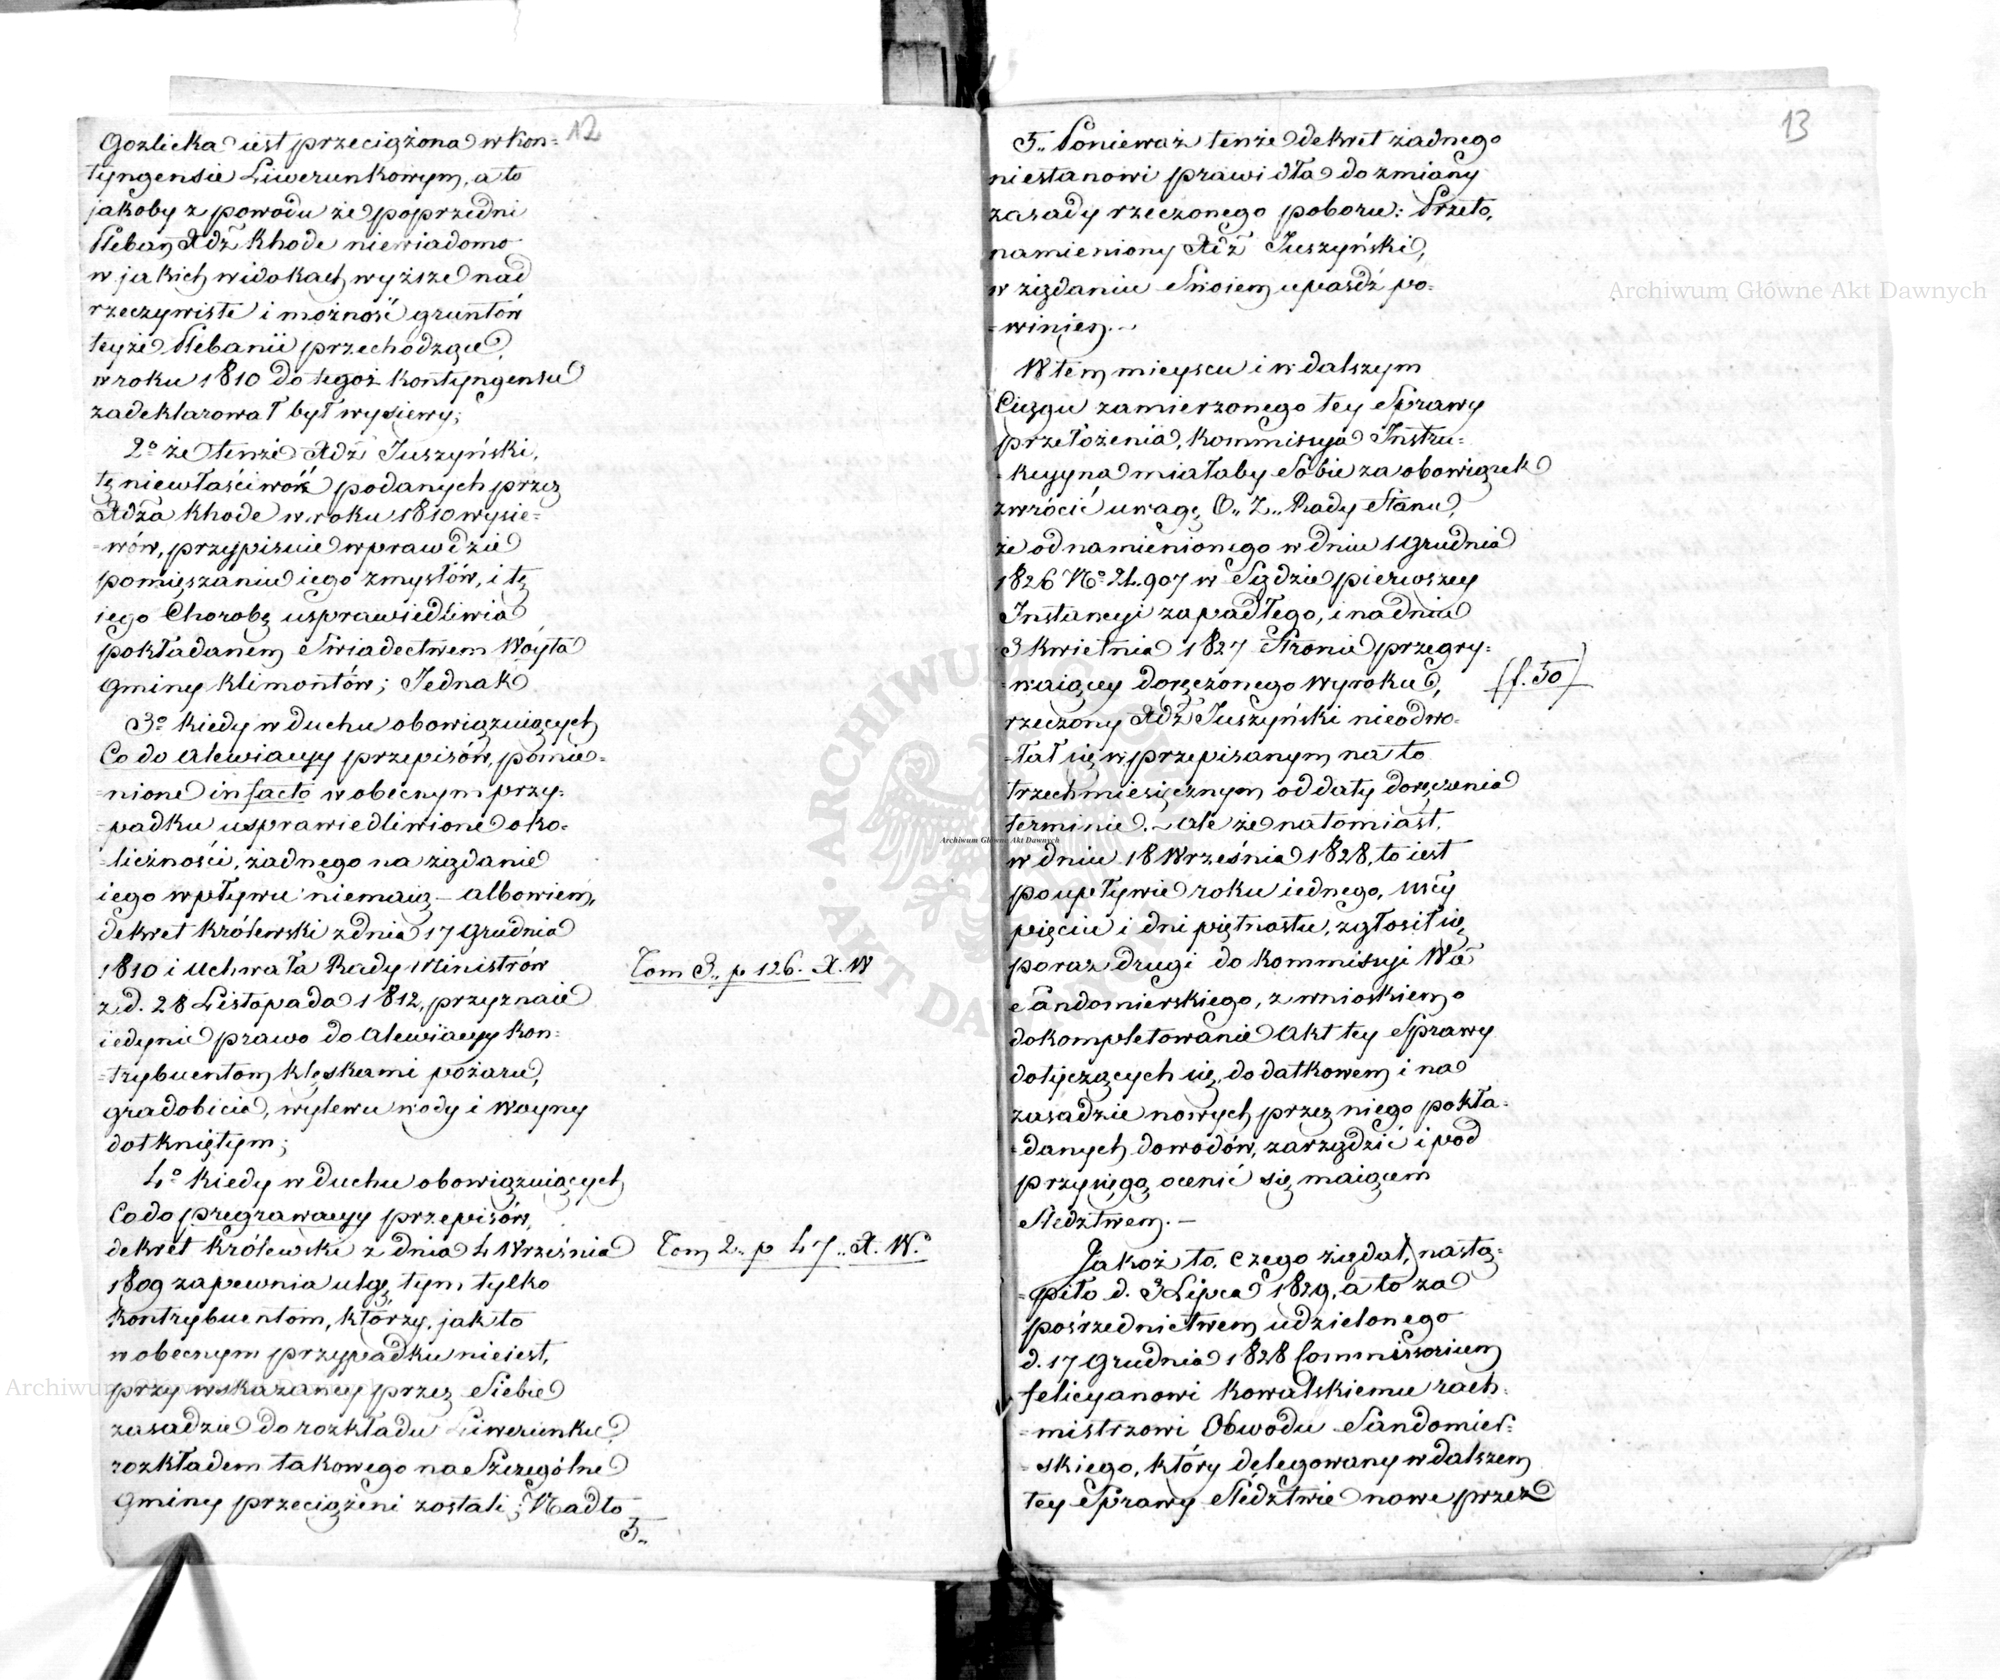 12
Gozlicka iest przeciążona w kon=
tyngensie Liwerunkowym, a to
jakoby z powodu że poprzedni
Pleban Xdz Khode niewiadomo
w jakich widokach wyższe nad
rzeczywiste i możność gruntów
teyże Plebanii przechodzące,
w roku 1810 do tegoż kontyngensu
zadeklarował był wysiewy;
2o że tenże Xdz Juszyński,
tę niewłaściwość podanych przez
Xdza Khode w roku 1810 wysie=
=wów, przypisuie wprawdzie
pomięszaniu iego zmysłów, i tę
iego Chorobę usprawiedliwia
pokładanem Swiadectwem Woyta
Gminy Klimontów; Jednak
3o kiedy w duchu obowiązuiących
Co do alewiacyy przepisów, pomie=
=nione in facto w obecnym przy=
=padku usprawiedliwione oko=
=liczności, żadnego na żądanie
iego wpływu niemaią – albowiem,
dekret Królewski z dnia 17 Grudnia
1810 i Uchwała Rady Ministrów
z d. 28 Listopada 1812, przyznaie
iedynie prawo do alewiacyy kon=
=trybuentom klęskami pożaru,
gradobicia, wylewu wody i Woyny
dotkniętym;
4o kiedy w duchu obowiązuiących
Co do pregrawacyy przepisów,
dekret Królewski z dnia 4 Września
1809 zapewnia ulgę tym tylko
Kontrybuentom, którzy, jak to
w obecnym przypadku nieiest,
przy wskazaney przez Siebie
zasadzie do rozkładu Liwerunku,
rozkładem takowego na Szczególne
Gminy przeciążeni zostali; Nadto
5„
Tom 3„ p 126. X. W
Tom 2„ p 47„ X. W.
13
5„ Ponieważ tenże dekret żadnego
niestanowi prawidła do zmiany
zasady rzeczonego poboru: Przeto,
namieniony Xdz Juszyński,
w żądaniu Swoiem upaśdź po=
=winien. –
W tem mieyscu i w dalszym
Ciągu zamierzonego tey Sprawy
przełożenia, Kommissya Instru=
=kcyyna miałaby Sobie za obowiązek
zwrócić uwagę O„ Z„ Rady Stanu,
że od namienionego w dniu 1 Grudnia
1826 No 24.907 w Sądzie pierwszey
Instancyi zapadłego, i na dniu
3 Kwietnia 1827 Stronie przegry=
=waiącey doręczonego Wyroku,
(f. 50)
rzeczony Xdz Juszyński nieodwo=
=łał się w przepisanym na to
trzechmiesięcznym od daty doręczenia
terminie. – Ale że natomiast,
w dniu 18 Września 1828, to iest
po upływie roku iednego, mcy
pięciu i dni piętnastu, zgłosił się
poraz drugi do Kommissyi Wa
Sandomierskiego, z wnioskiem o
dokompletowanie Akt tey Sprawy
dotyczących się, dodatkowem i na
zasadzie nowych przez niego pokła=
=danych dowodów, zarządzić i pod
przysięgą ocenić się maiącem
Śledztwem. –
Jakoż to, czego żądał, nastą=
=piło d. 3 Lipca 1829, a to za
pośrzednictwem udzielonego
d. 17 Grudnia 1828 Commissorium
Felicyanowi Kowalskiemu rach=
=mistrzowi Obwodu Sandomier=
=skiego, który delegowany w dalszem
tey Sprawy Śledztwie nowe przez
Archiwum Główne Akt Dawnych
Archiwum Główne Akt Dawnych
Archiwum Główne Akt Dawnych